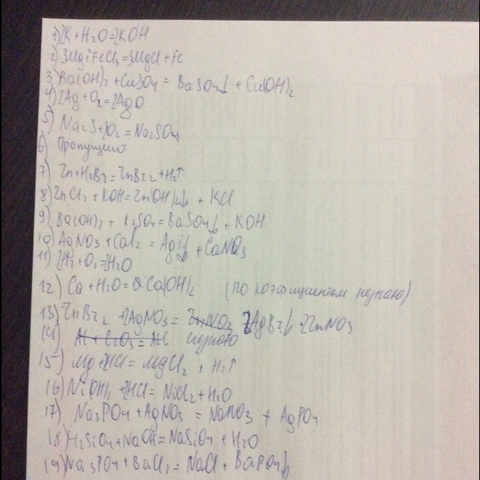 1) 2K + H2O = 2KOH
2) 3Mg + FeCl3 = 3MgCl + Fe
3) Ba(OH)2 + CuSO4 = BaSO4↓ + Cu(OH)2
4) 2Ag + O2 = 2AgO
5) Na2S + 2O2 = Na2SO4
6) Пропущено
7) Zn + H2Br = ZnBr2 + H2↑
8) ZnCl2 + KOH = Zn(OH)2↓ + KCl
9) Ba(OH)2 + K2SO4 = BaSO4↓ + KOH
10) AgNO3 + CaI2 = AgI↓ + CaNO3
11) 2H2 + O2 = 2H2O
12) Ca + H2O = Ca(OH)2 (по коэфициентом незнаю)
13) ZnBr2 + 2AgNO3 = 2AgBr↓ + 2ZnNO3
14) незнаю
15) Mg + 2HCl = MgCl2 + H2↑
16) Ni(OH)2 + 2HCl = NiCl2 + H2O
17) Na3PO4 + AgNO3 = NaNO3 + AgPO4
18) H2SiO4 + NaOH = NaSiO4 + H2O
19) Na3PO4 + BaCl2 = NaCl + BaPO4↓